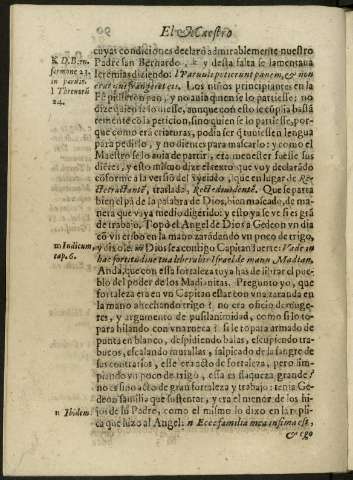 El Maestro
cuyas condiciones declarò admirablemente nuestro
K D. B. in
Padre san Bernardo, k y desta falta se lamentaua
sermone 23.
Ieremias diziendo: l Paruuli petierunt panem, & non
in paruis.
erat qui frangeret eis. Los niños principiantes en la
l Threnorũ
Fè pidieron pan, y no auia quien se lo partiesse: no
24.
dize quien se lo diesse, aunque esto le cũplia basta
temente cõ la peticion, sino quien se lo partiesse, por
que como erã criaturas, podia ser q̃ tuuiessen lengua
para pedirlo, y no dientes para mascarlo: y como el
Maestro se lo auia de partir, era menester fuesse sus
diẽtes, y esto mismo dize el texto que voy declarãdo
conforme a la version del que en lugar de Re-
ctè tractantẽ, traslada, Rectè diuidentẽ. Que se parta
bien el pã de la palabra de Dios, bien mascado, de ma
nera que vaya medio digerido: y esto ya se ve si es grã
de trabajo. Topò el Angel de Dios a Gedeon vn dia
cõ vn cribo en la mano zarãdando vn poco de trigo,
m Iudicum,
y dixole: m Dios sea contigo Capitan fuerte: Vade in
cap. 6.
hac fortitudine tua liberabis Israel de manu Madian.
Anda, que con essa fortaleza tuya has de librar el pue
blo del poder de los Madianitas. Pregunto yo, que
fortaleza era en vn Capitan estar con vna zaranda en
la mano ahechando trigo? no era oficio de muge-
res, y argumento de pusilanimidad, como si lo to-
para hilando con vna rueca? si le topara armado de
punta en blanco, despidiendo balas, escupiendo tra-
bucos, escalando murallas, salpicado de la sangre de
sus contrarios, esse era acto de fortaleza, pero lim-
piando vn poco de trigo, essa es flaqueza grande?
no es sino acto de gran fortaleza y trabajo: tenia Ge-
deon familia que sustentar, y era el menor de los hi-
n Ibidem.
jos de su Padre, como el mismo lo dixo en la repli-
ca que hizo al Angel: n Ecce familia mea infima est,
& ego